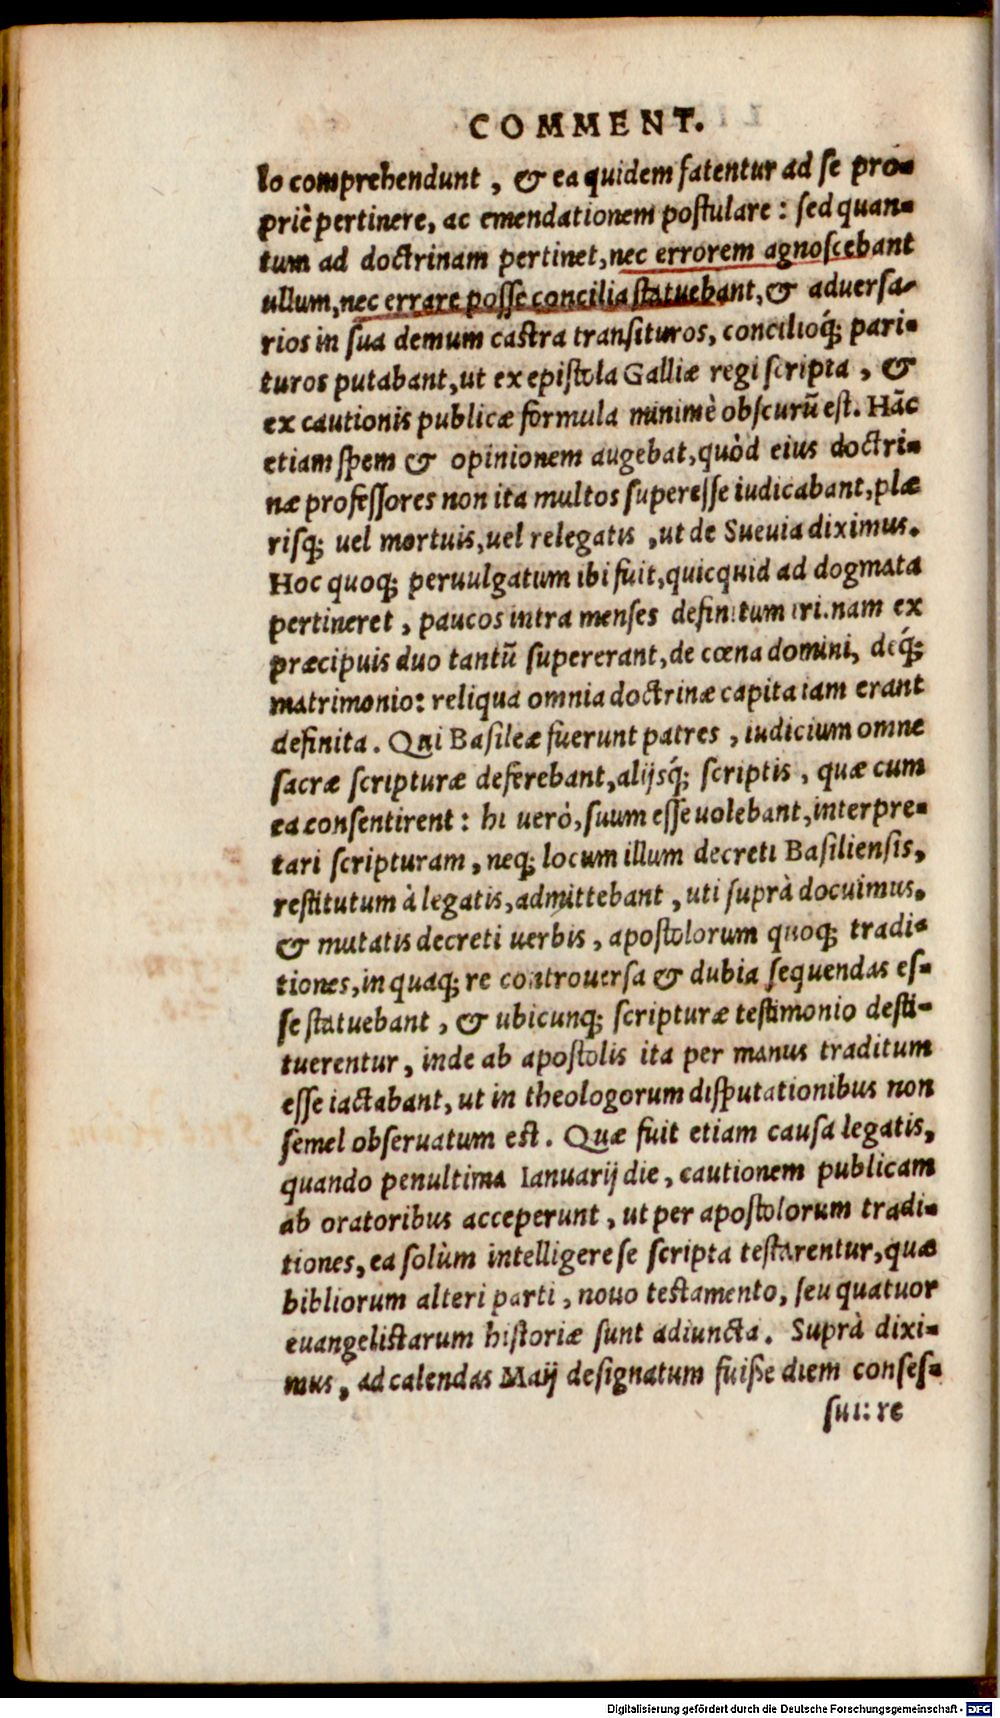 COMMENT.
lo comprehendunt, & ea quidem fatentur ad se pro-
priè pertinere, ac emendationem postulare: sed quan-
tum ad doctrinam pertinet, nec errorem agnoscebant
ullum, nec errare posse concilia statuebant, & adversa-
rios in sua demum castra transituros, concilioq́; pari-
turos putabant, ut ex epistola Galliæ regi scripta, &
ex cautionis publicæ formula minimè obscurũ est. Hãc
etiam spem & opinionem augebat, quòd eius doctri-
næ professores non ita multos superesse iudicabant, plæ
risq; uel mortuis, uel relegatis, ut de Sueuia diximus.
Hoc quoq; peruulgatum ibi fuit, quicquid ad dogmata
pertineret, paucos intra menses definitum iri. nam ex
præcipuis duo tantũ supererant, de cœna domini, deq́;
matrimonio: reliqua omnia doctrinæ capita iam erant
definita. Qui Basileæ fuerunt patres, iudicium omne
sacræ scripturæ deferebant, alijsq́; scriptis, quæ cum
ea consentirent: hi uerò, suum esse uolebant, interpre-
tari scripturam, neq; locum illum decreti Basiliensis,
restitutum à legatis, admittebant, uti suprà docuimus,
& mutatis decreti uerbis, apostolorum quoq; tradi-
tiones, in quaq; re controuersa & dubia sequendas es-
se statuebant, & ubicunq; scripturæ testimonio desti-
tuerentur, inde ab apostolis ita per manus traditum
esse iactabant, ut in theologorum disputationibus non
semel obseruatum est. Quæ fuit etiam causa legatis,
quando penultima Ianuarij die, cautionem publicam
ab oratoribus acceperunt, ut per apostolorum tradi-
tiones, ea solùm intelligere se scripta testarentur, quæ
bibliorum alteri parti, nouo testamento, seu quatuor
euangelistarum historiæ sunt adiuncta. Suprà dixi-
mus, ad calendas Maij designatum fuisse diem conses-
sui: re
Digitalisierung gefördert durch die Deutsche Forschungsgemeinschaft - DFG